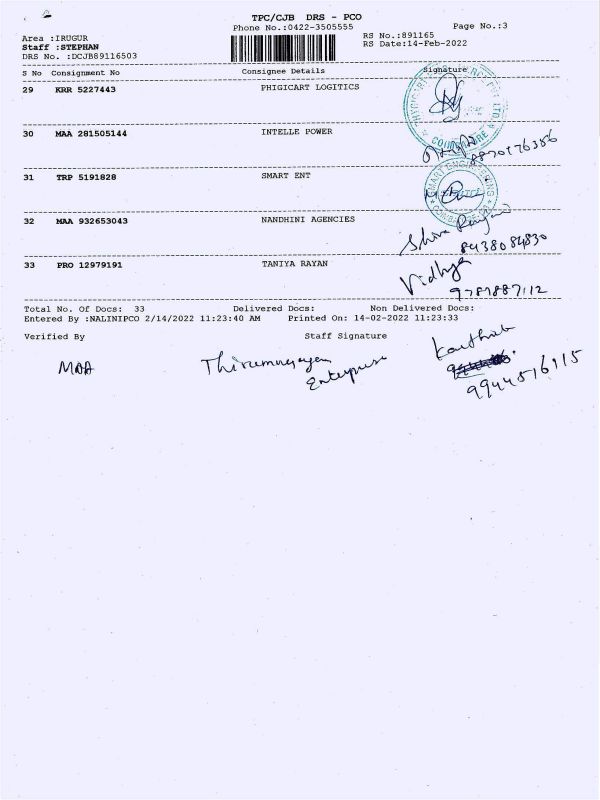 TPC/CJB DRS - PCO
Phone No.:0422-3505555
Page No.:3
Area :IRUGUR
RS No.:891165
Staff :STEPHAN
RS Date:14-Feb-2022
DRS No. :DCJB89116503
S No Consignment No Consignee Details Signature
29 KRR 5227443 PHIGICART LOGITICS
30 MAA 281505144 INTELLE POWER
COIMBATORE
8870176386
31 TRP 5191828 SMART ENT
SMART ENGINEERING
COIMBATORE
32 MAA 932653043 NANDHINI AGENCIES
8438084830
33 PRO 12979191 TANIYA RAYAN
Vidhya
9787887112
Total No. Of Docs: 33 Delivered Docs: Non Delivered Docs:
Entered By :NALINIPCO 2/14/2022 11:23:40 AM Printed On: 14-02-2022 11:23:33
Verified By Staff Signature
MAA
Enterprise
9944516115